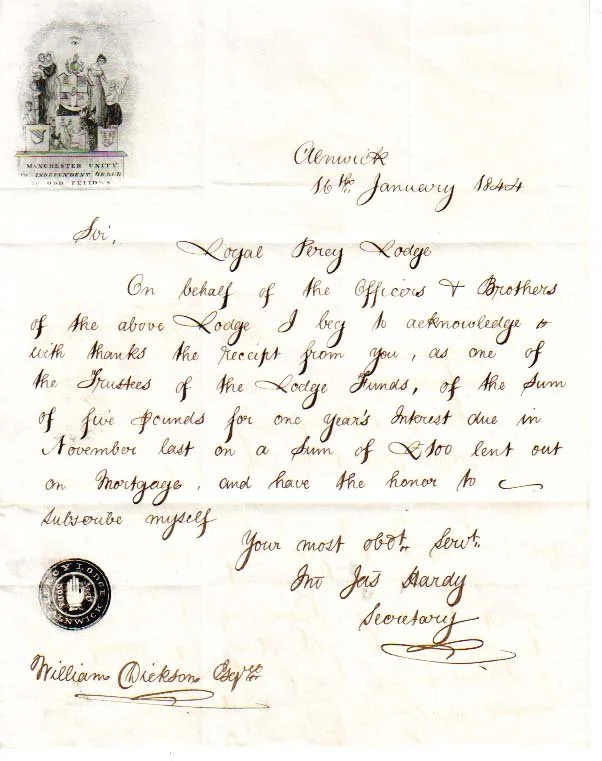 MANCHESTER UNITY
INDEPENDENT ORDER
OF ODD FELLOWS
Alnwick
16th January 1844
Sir,
Loyal Percy Lodge
On behalf of the Officers & Brothers
of the above Lodge I beg to acknowledge
with thanks the receipt from you, as one of
the Trustees of the Lodge Funds, of the sum
of five pounds for one year's Interest due in
November last on a sum of £100 lent out
on Mortgage, and have the honor to
subscribe myself
Your most obdt. Servt.
Jno Jas Hardy
Secretary
PERCY LODGE
ALNWICK
William Dickson Esqre